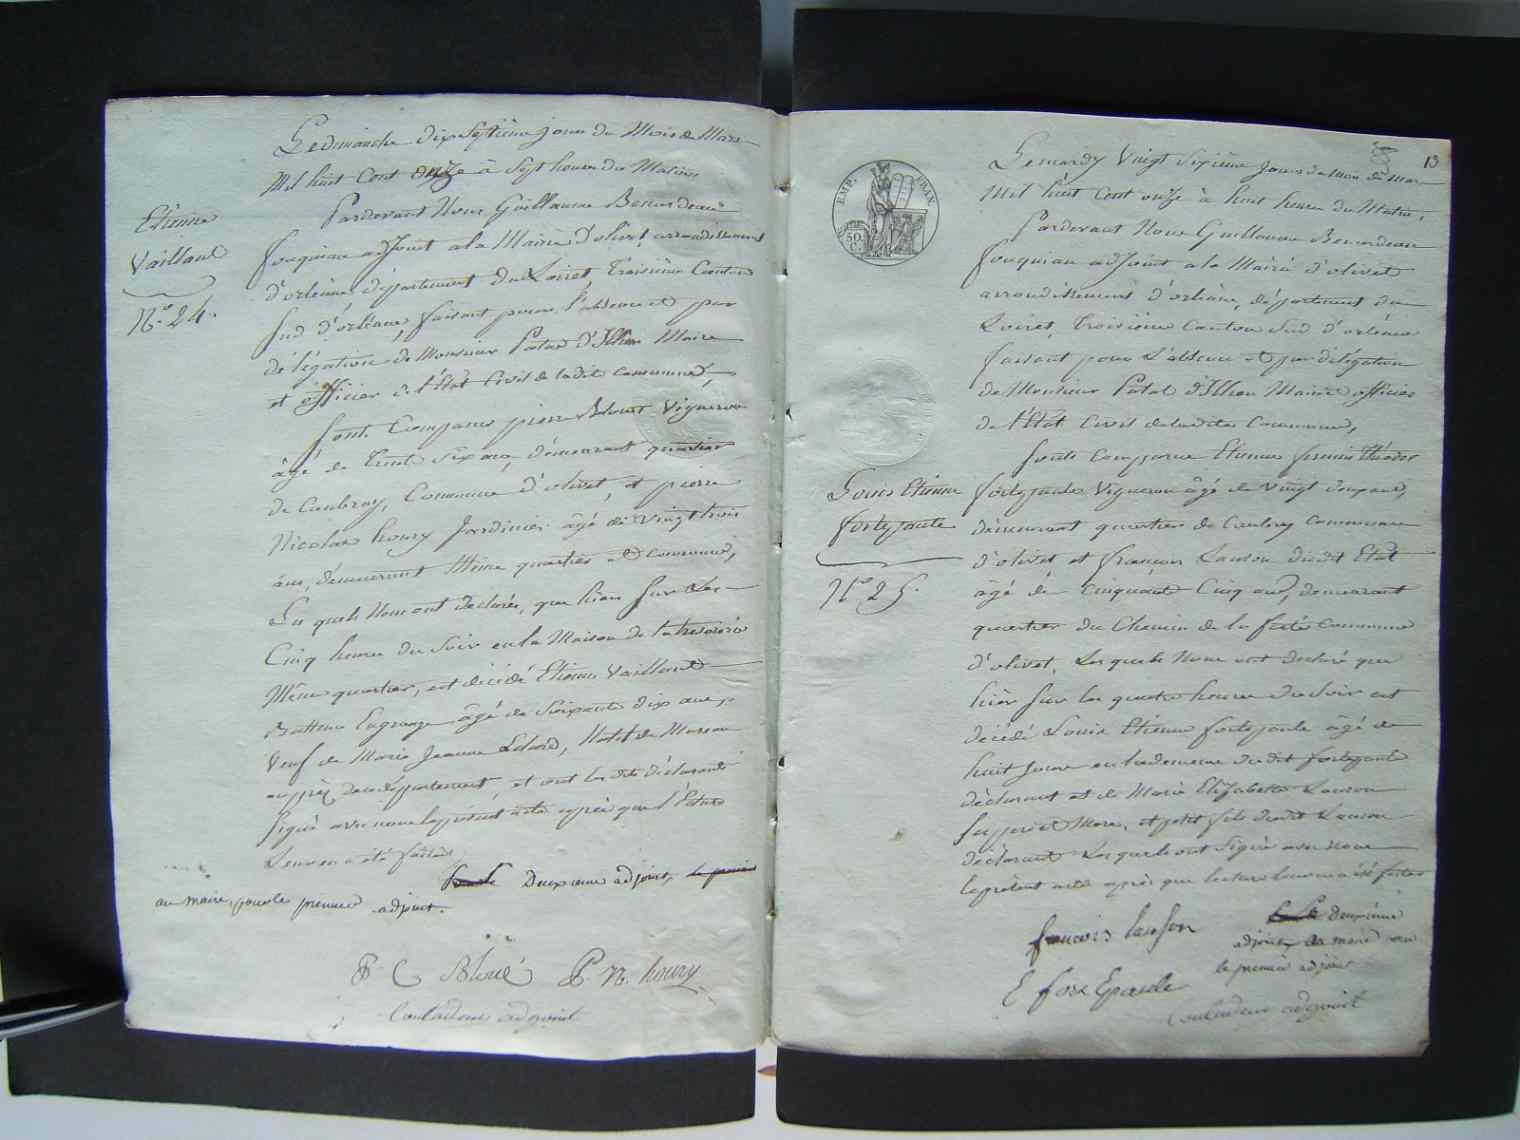 Le dimanche dix Septième jour du Mois de Mars
Mil huit Cent onze à Sept heures du Matin
Pardevant Nous Guillaume Benardeau
fouqueau adjoint a la Mairie d'olivet arrondissement
d'orléans, département du Loiret, Troisième Canton
Sud d'orléans, faisant pour l'absence et par
délégation de Monsieur Patas d'Illiers Maire
et officier de l'État Civil de ladite Commune,
Sont Comparus pierre Vigneron
âgé de Trente Six ans, demeurant quartier
de Caubray, Commune d'olivet, et pierre
Nicolas houry Jardinier âgé de Vingt trois
ans, demeurant Même quartier et Commune,
Les quels Nous ont déclarés, que hier Sur Les
Cinq heures du Soir en la Maison de la trésorerie
Même quartier, est décédé Etienne Vaillant
Batteur en grange âgé de Soixante dix ans,
Veuf de Marie Jeanne Natif de
de département, et ont les dits déclarants
Signé avec nous le présent acte après que lecture
Leur en a été faite
Deuxieme adjoint,
au maire, pour le premier adjoint.
Etienne
Vaillant
N.º 24.
P C Bloué P. N. houry
Couladeur adjoint
13
EMP. FRAN.
50
C.
Le mardy Vingt Sixième Jour du mois de mars
Mil huit Cent onze à huit heures du Matin,
Pardevant Nous Guillaume Benardeau
fouqueau adjoint a la Mairie d'olivet
arrondissement d'orléans, département du
Loiret, Troisième Canton Sud d'orléans
faisant pour L'absence et par délégation
de Monsieur Patas d'Illiers Maire officier
de l'État Civil de ladite Commune,
Sont Comparus Etienne
fortépaule Vigneron âgé de Vingt ans,
demeurant quartier de Caubray Commune
d'olivet et françois Lauson dudit Etat
âgé de Cinquante Cinq ans, demeurant
quartier du Chemin de la ferté Commune
d'olivet, Les quels Nous ont déclaré que
hier Sur les quatre heures du Soir est
décédé Louis Etienne fortépaule âgé de
huit Jours en la demeure dudit fortépaule
déclarant et de Marie Elizabette Lauson
Ses père et Mère, et petit fils dudit Lauson
déclarant Les quels ont Signé avec nous
le présent acte après que lecture leur en a été faite
Louis Etienne
fortépaule
N.º 25.
deuxieme
adjoint au maire
le premier adjoint
francois lauson
E fortEpaule
Couladeur adjoint